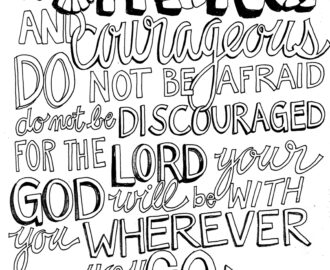 AND courageous
DO NOT BE AFRAID
do not be DISCOURAGED
FOR THE LORD your
GOD will be WITH
you WHEREVER
you GO